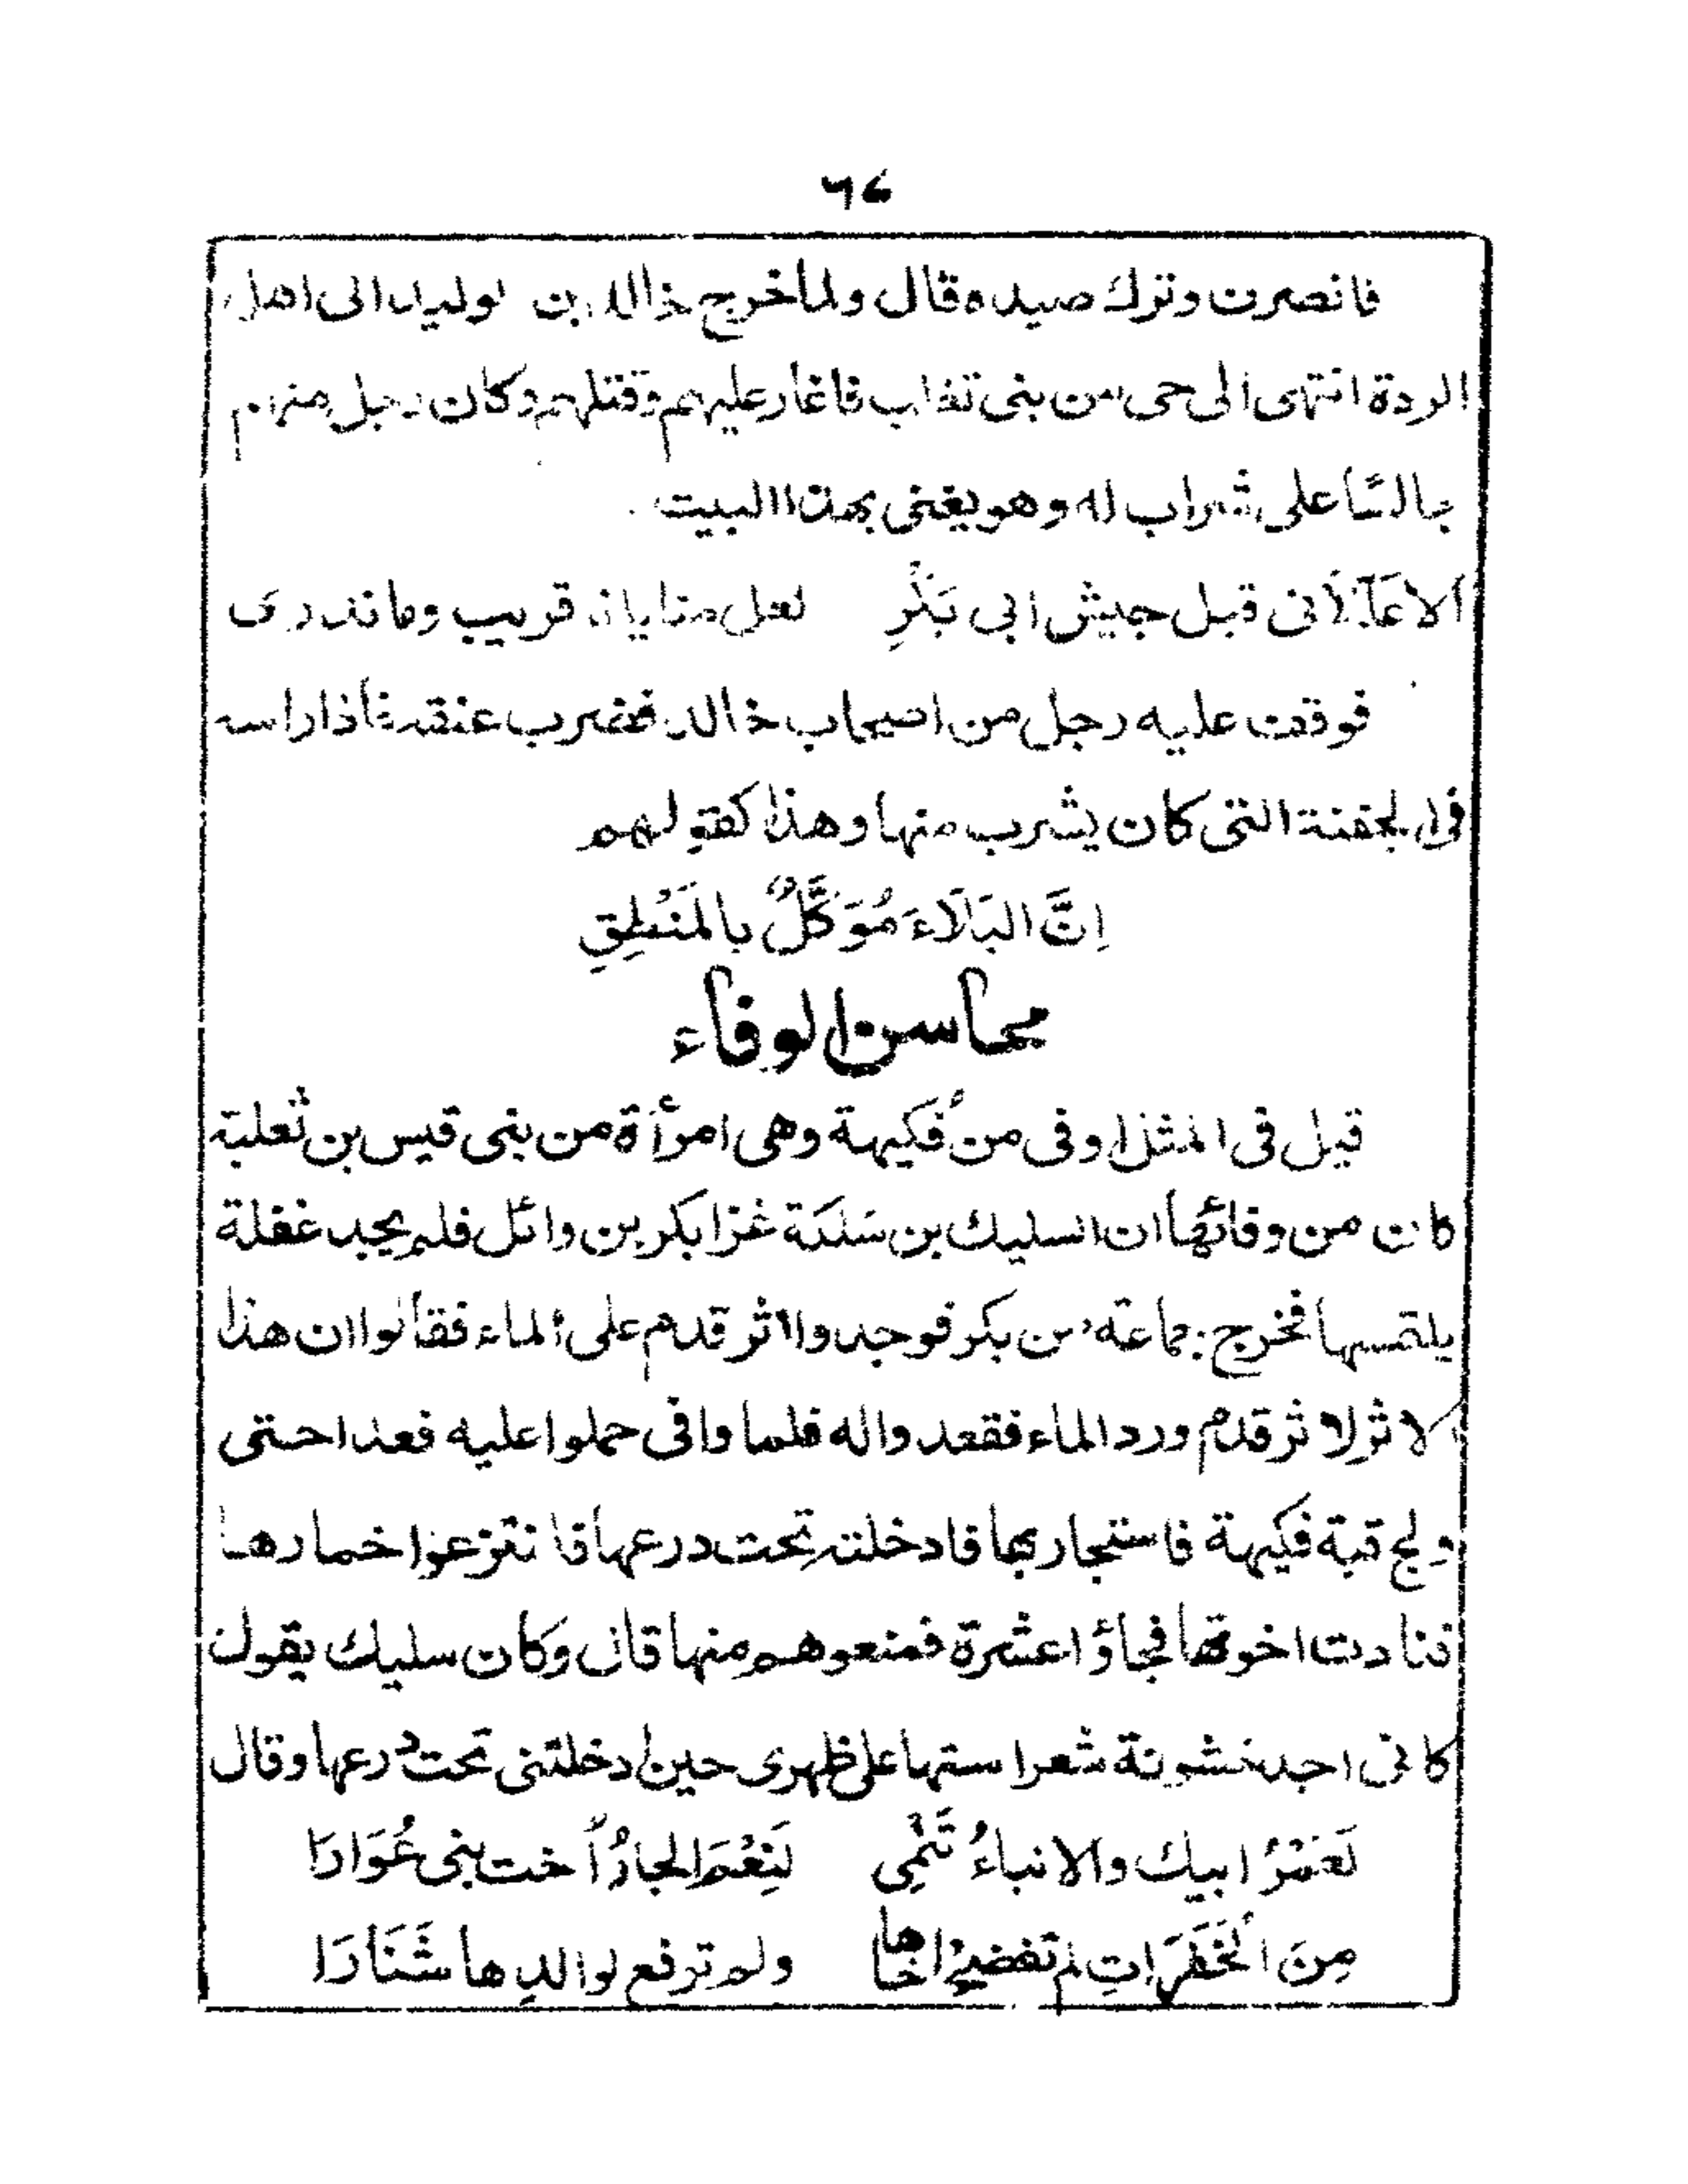 ۶۷
فانصرف وترك صيده قال ولما خرج خالد بن الوليد الى اهل
الردة انتهى الى حى من بنى تغلب فاغار عليهم وقتلهم وكان رجل منهم
جالسًا على شراب له وهو يغنى بهذا البيت
الا عَلِّلانى قبل جيش ابى بَكْرِ لعل منايانا قريب وما ندرى
فوقف عليه رجل من اصحاب خالد فضرب عنقه فاذا راسه
فى الجفنة التى كان يشرب منها وهذا كقولهم
اِنَّ البَلَاءَ مُوَكَّلٌ بالمَنْطِقِ
محاسن الوفاء
قيل فى المثل اوفى من فُكَيهة وهى امرأة من بنى قيس بن ثعلبة
كان من وفائها ان السليك بن سَلَكَة غزا بكر بن وائل فلم يجد غفلة
يلتمسها فخرج جماعة من بكر فوجدوا اثر قدم على الماء فقالوا ان هذا
الاثر لاثر قدم ورد الماء فقعدوا له فلما وافى حملوا عليه فعدا حتى
ولج قبة فكيهة فاستجار بها فادخلته تحت درعها فانتزعوا خمارها
فنادت اخوتها فجاؤا عشرة فمنعوهم منها قال وكان سليك يقول
كانى اجد خشونة شعر استها على ظهرى حين ادخلتنى تحت درعها وقال
لَعَمْرُ ابيك والانباءُ تَنْمِى لَنِعْمَ الجارُ اُخت بنى عُوَارَا
مِنَ الخَفَرَاتِ لم تفضح اخاها ولم ترفع لوالدِها شَنَارَا